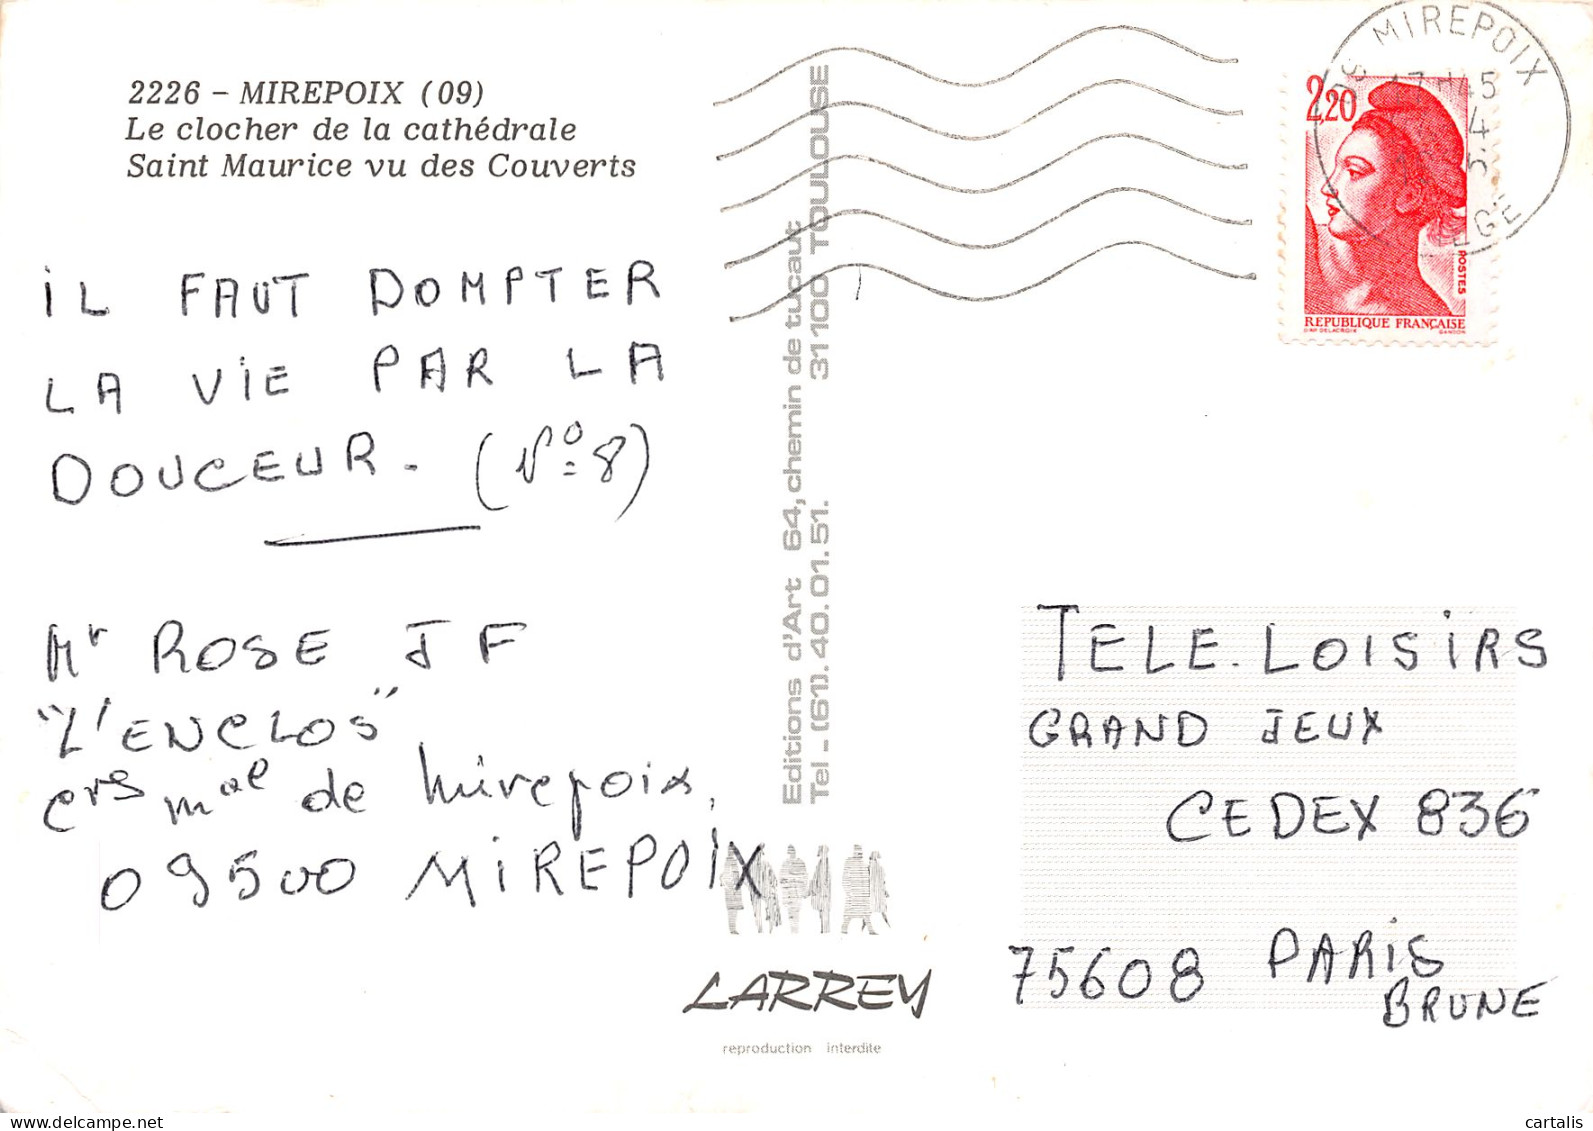 2226 - MIREPOIX (09)
Le clocher de la cathédrale
Saint Maurice vu des Couverts
IL FAUT DOMPTER
LA VIE PAR LA
DOUCEUR. (N° 8)
Mr ROSE JF
"L'ENCLOS"
crs mal de Mirepoix,
09500 MIREPOIX
Editions d'Art 64, chemin de tucaut
Tel - (61). 40.01.51. 31100 TOULOUSE
LARREY
reproduction interdite
MIREPOIX
45
4
2,20
POSTES
REPUBLIQUE FRANÇAISE
D'AP. DELACROIX GANDON
TELE. LOISIRS
GRAND JEUX
CEDEX 836
75608 PARIS
BRUNE
cartalis